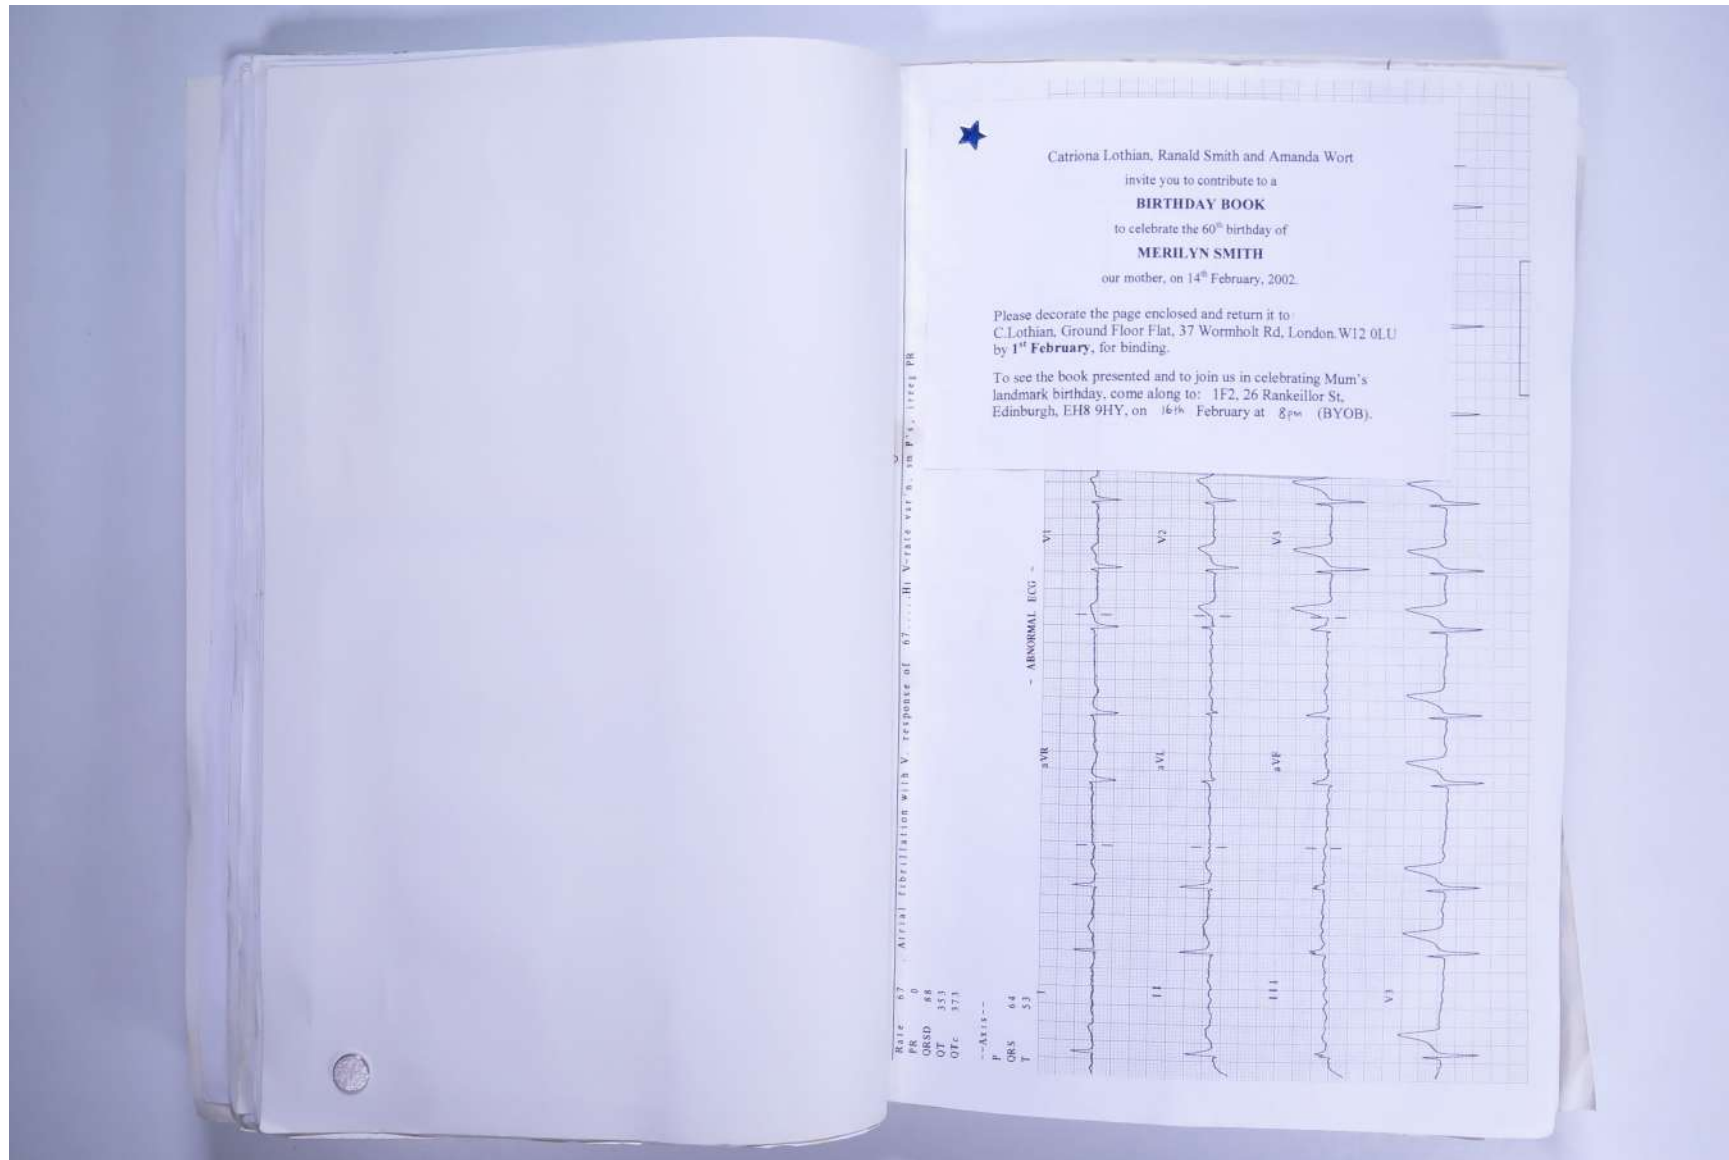 Catriona Lothian, Ranald Smith and Amanda Wort
invite you to contribute to a
BIRTHDAY BOOK
to celebrate the 60th birthday of
MERILYN SMITH
our mother, on 14th February, 2002.
Please decorate the page enclosed and return it to
C.Lothian, Ground Floor Flat, 37 Wormholt Rd, London.W12 0LU
by 1st February, for binding.
To see the book presented and to join us in celebrating Mum's
landmark birthday, come along to: 1F2, 26 Rankeillor St,
Edinburgh, EH8 9HY, on 16th February at 8pm (BYOB).
Rate 67 . Atrial fibrillation with V. response of 67.....Hi V-rate var'n. sm P's, irreg PR
PR 0
QRSD 88
QT 353
QTc 373
--Axis--
P
QRS 64
T 53
- ABNORMAL ECG -
I aVR V1
II aVL V2
III aVF V3
V3